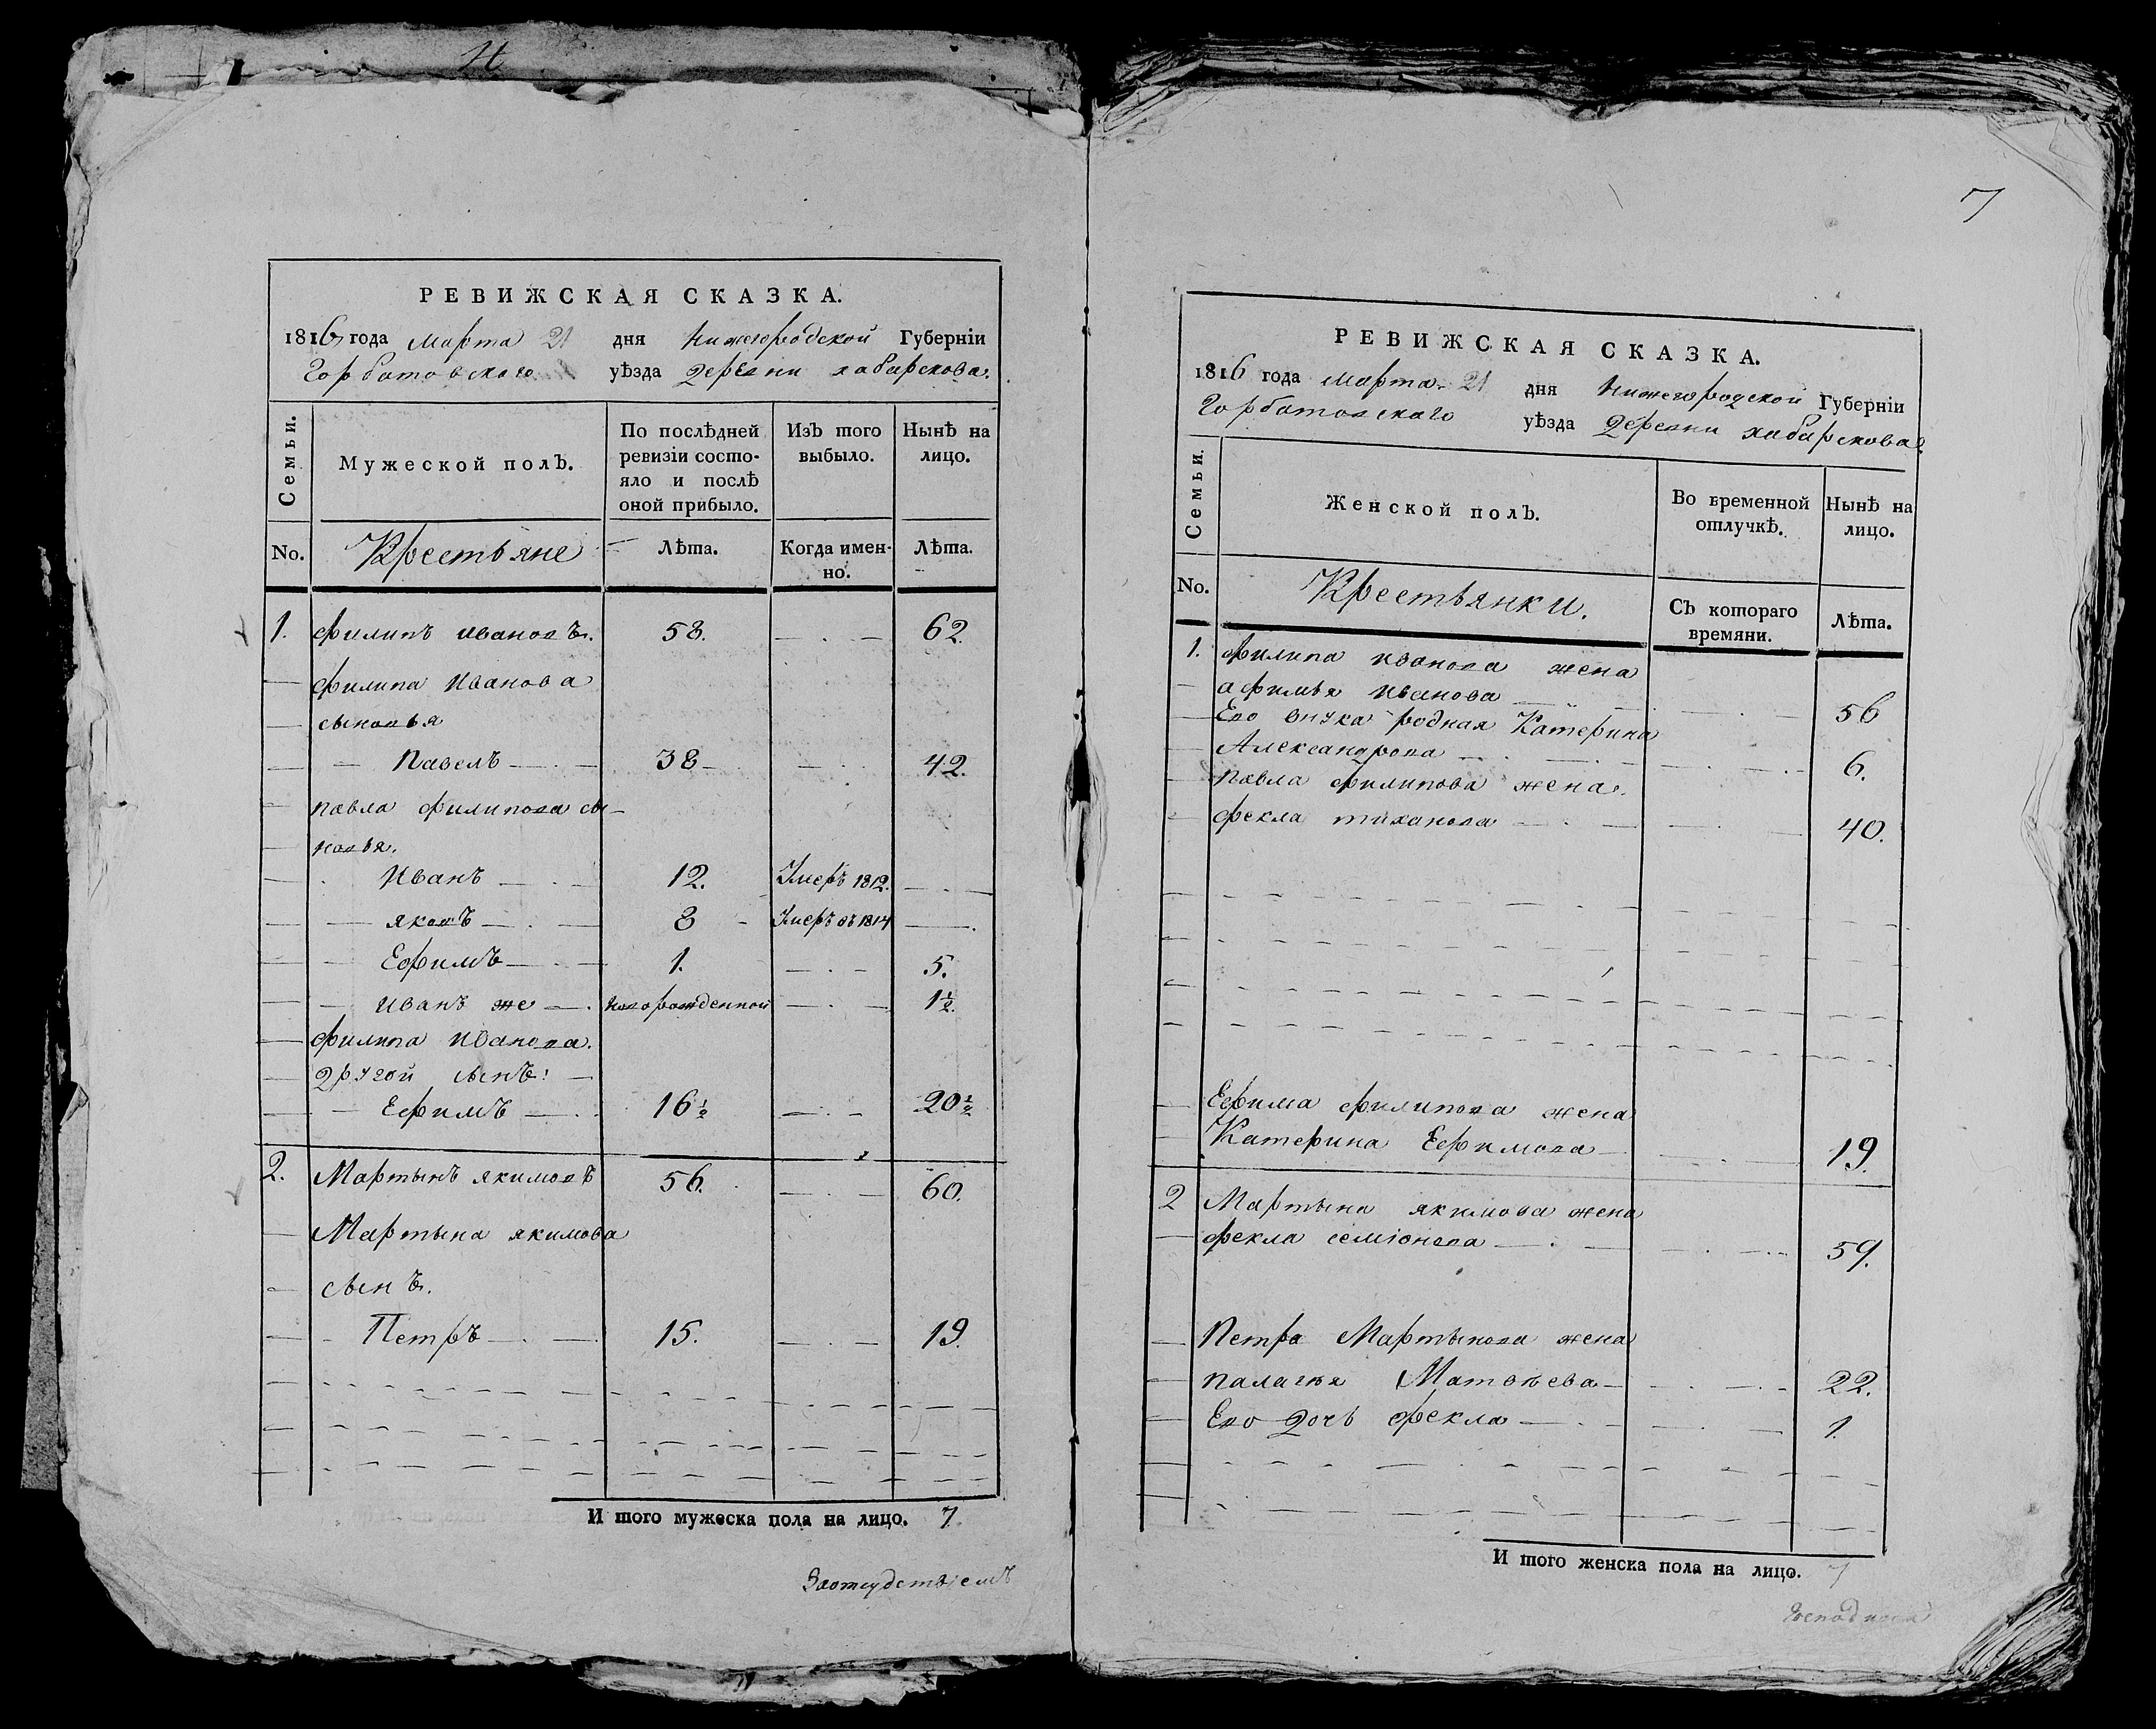 РЕВИЖСКАЯ СКАЗКА.
1816 года марта 21 дня Нижегородской Губерніи
Горбатовскаго уѣзда деревни хабарскова.
Семьи. Мужеской полъ. По послѣдней ревизіи состояло и послѣ оной прибыло. Изъ того выбыло. Нынѣ на лицо.
No. Крестьяне Лѣта. Когда именно. Лѣта.
1. филипъ ивановъ. 58. 62.
филипа иванова
сыновья
Павелъ 38 42.
павла филипова сы-
новья.
Иванъ 12. Умеръ 1812.
яковъ 8 Умеръ въ 1814
Ефимъ 1. 5.
иванъ же новорожденной 1½.
филипа иванова.
другой сынъ:
Ефимъ 16½ 20½
2. Мартынъ якимовъ 56. 60.
Мартына якимова
сынъ.
Петръ 15. 19.
И того мужеска пола на лицо. 7.
Заотсудствіемъ
7
РЕВИЖСКАЯ СКАЗКА.
1816 года марта 21 дня Нижегородской Губерніи
Горбатовскаго уѣзда деревни хабарскова.
Семьи. Женской полъ. Во временной отлучкѣ. Нынѣ на лицо.
No. Крестьянки. Съ котораго времяни. Лѣта.
1. филипа иванова жена
афимья иванова 56
Ево внука родная Катерина
Александрова 6.
павла филипова жена.
фекла тиханова 40.
Ефима филипова жена
Катерина Ефимова 19.
2 Мартына якимова жена
фекла семіонова 59.
Петра Мартынова жена
палагея Матвѣева 22.
Ево дочь фекла 1.
И того женска пола на лицо. 7